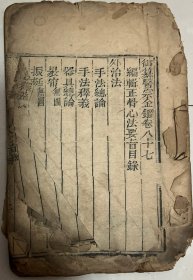 御纂醫宗金鑑卷八十七
編輯正骨心法要旨目錄
外治法
手法總論
手法釋義
器具總論
裹帘有圖
振梃有圖